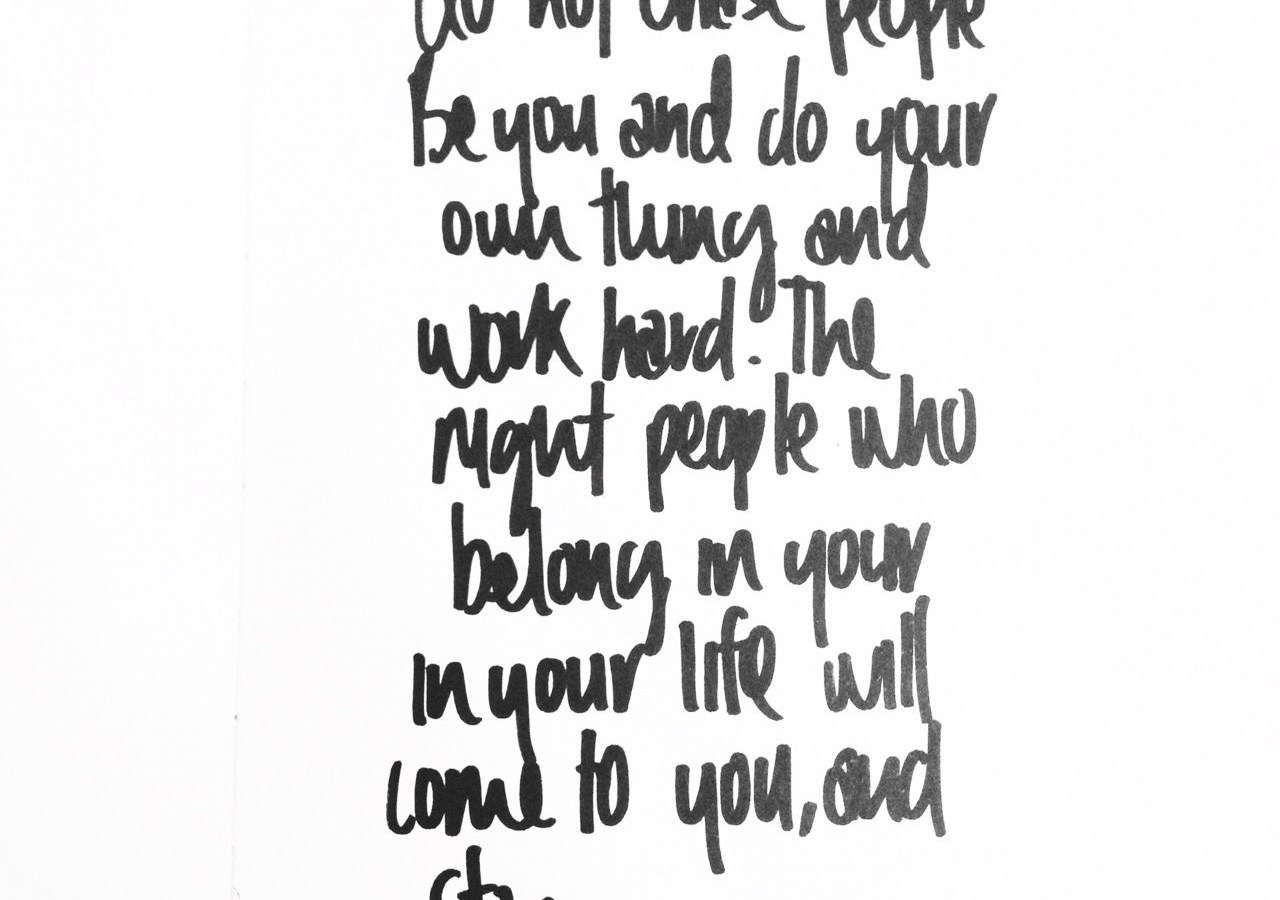 do not chase people
be you and do your
own thing and
work hard. The
right people who
belong in your
in your life will
come to you, and